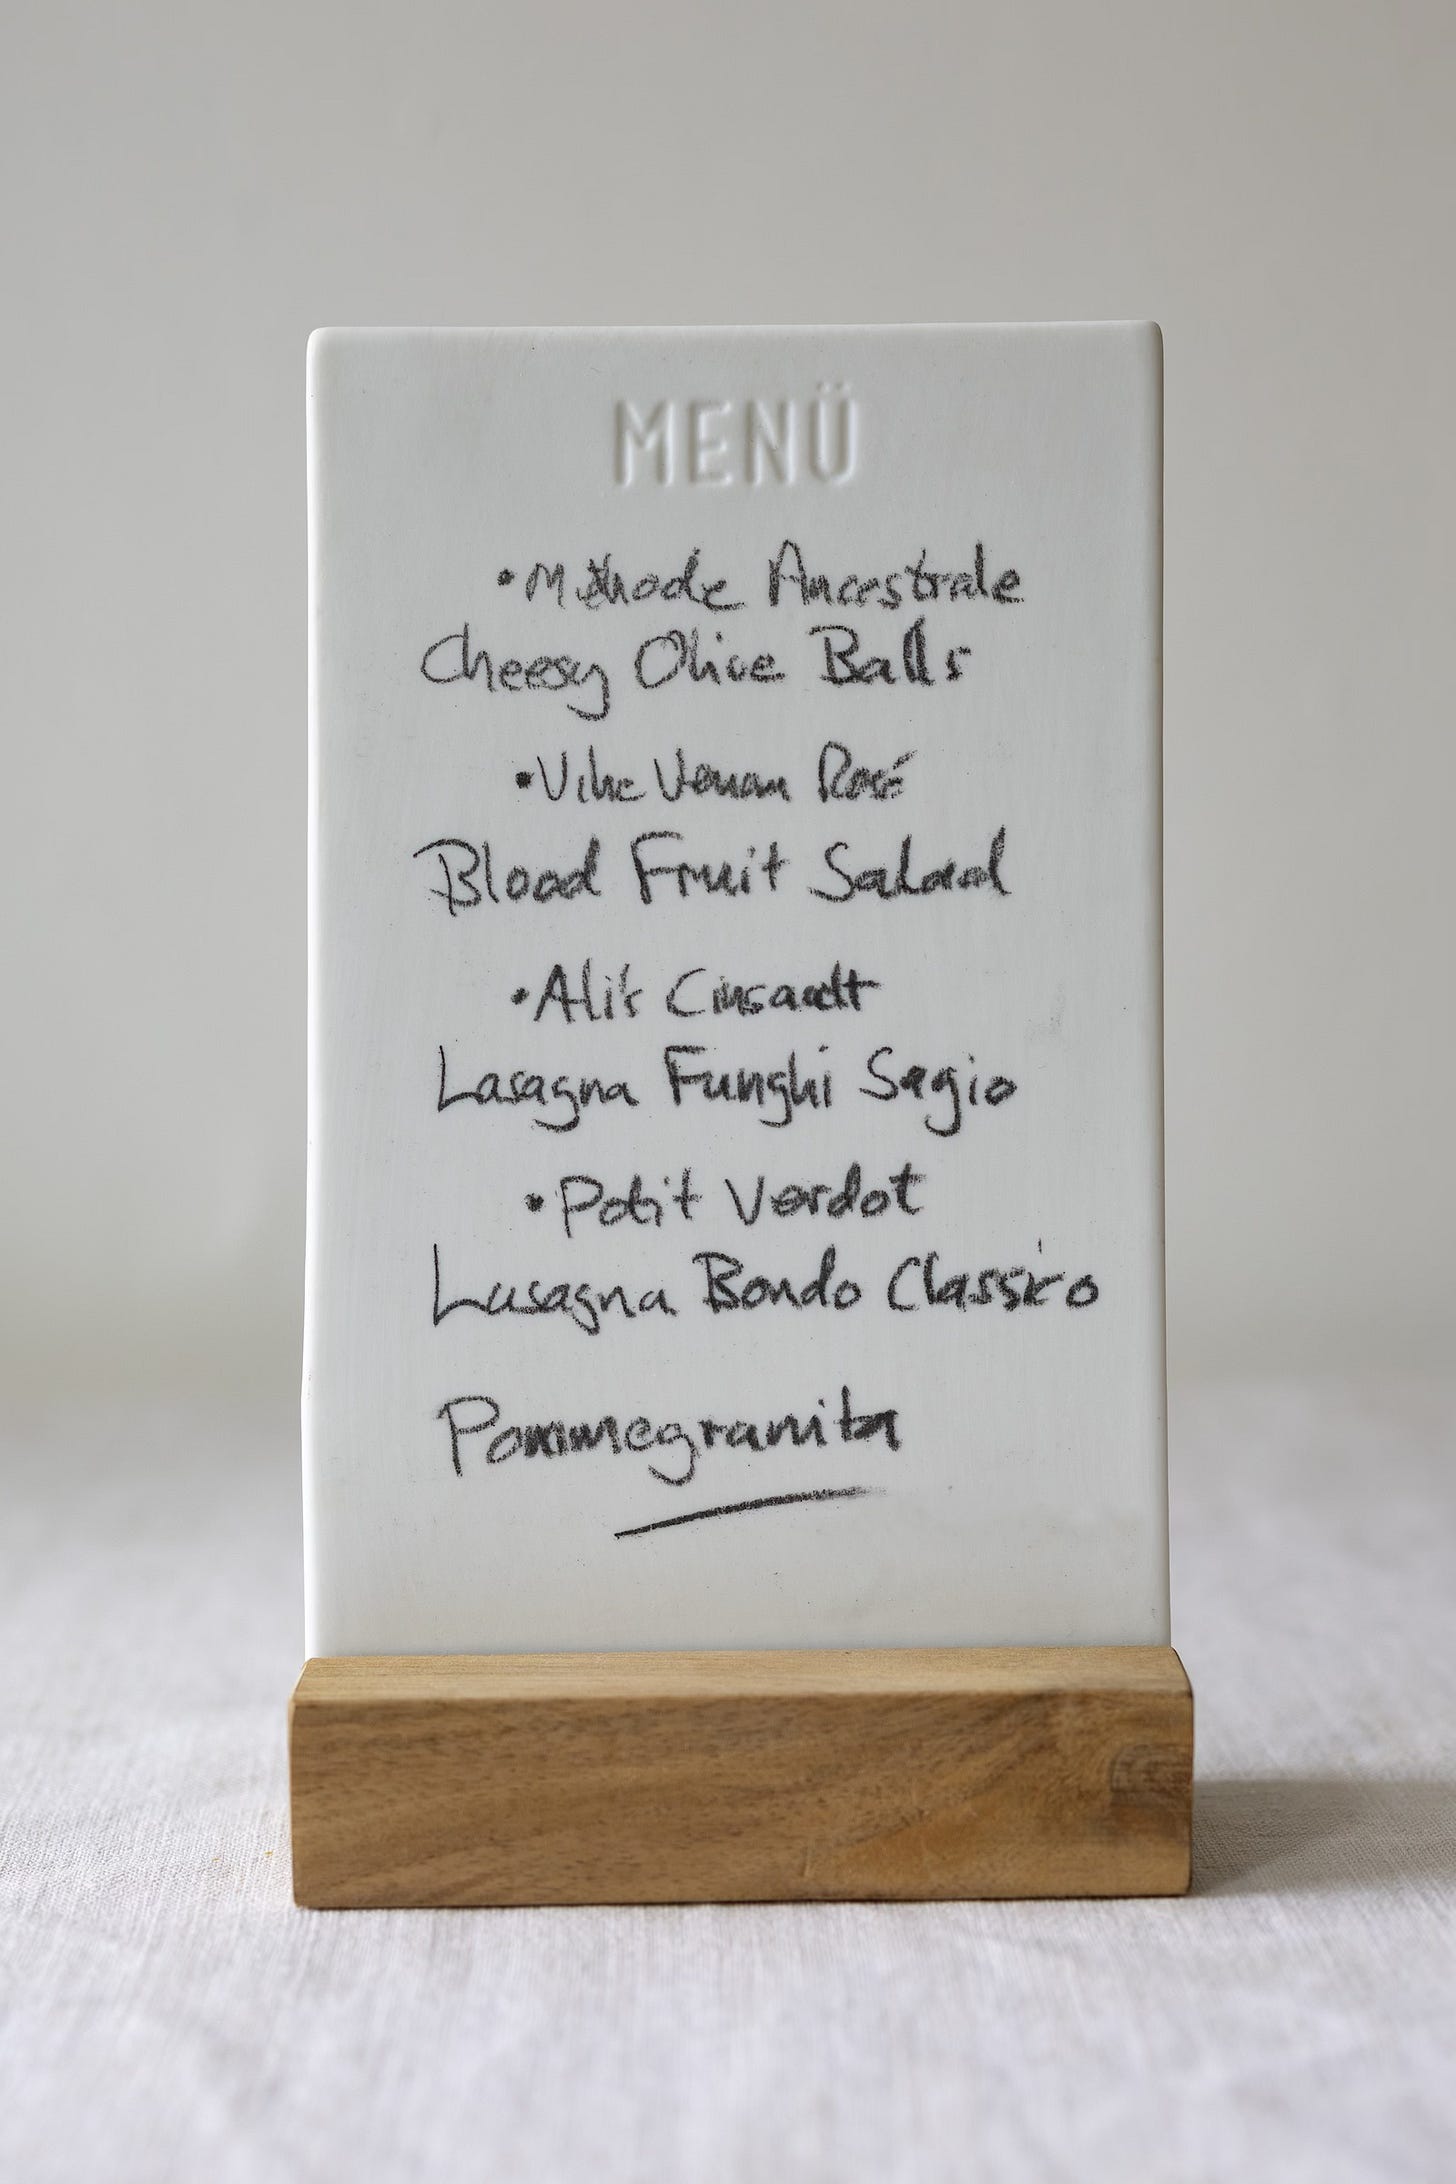 MENÜ
•Méthode Ancestrale
Cheesy Olive Balls
Rosé
Blood Fruit Salad
•Ali's Cinsault
Lasagna Funghi Sagio
•Petit Verdot
Lasagna Bondo Classico
Pommegranita